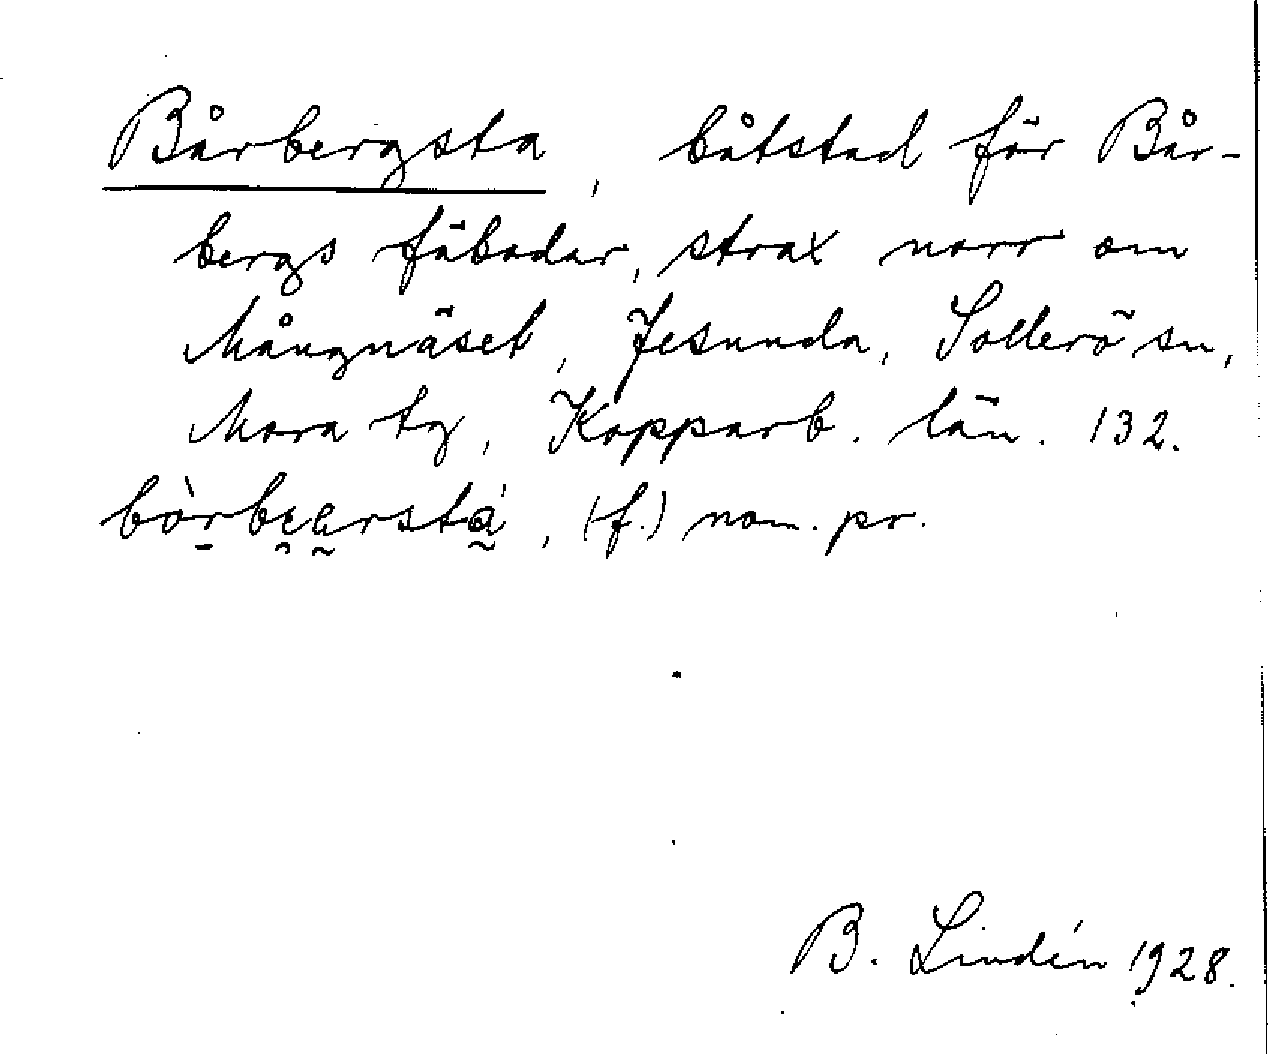 Bårbergsta, båtstad för Bår-
bergs fäbodar, strax norr om
Mångnäset, Jesunda, Sollerö sn,
Mora tg, Kopparb. län. 132.
bòrbeərsta, (f.) nom. pr.
B. Lindén 1928.